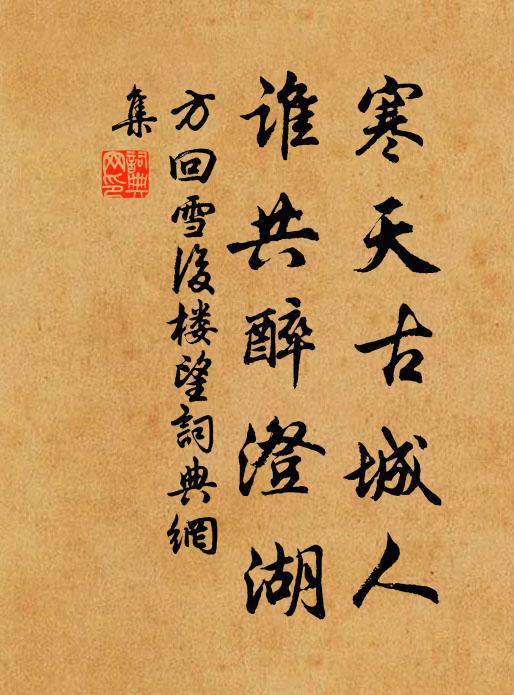 寒天古城人
谁共醉澄湖
方回雪後楼望詞典網
集
詞典
网印